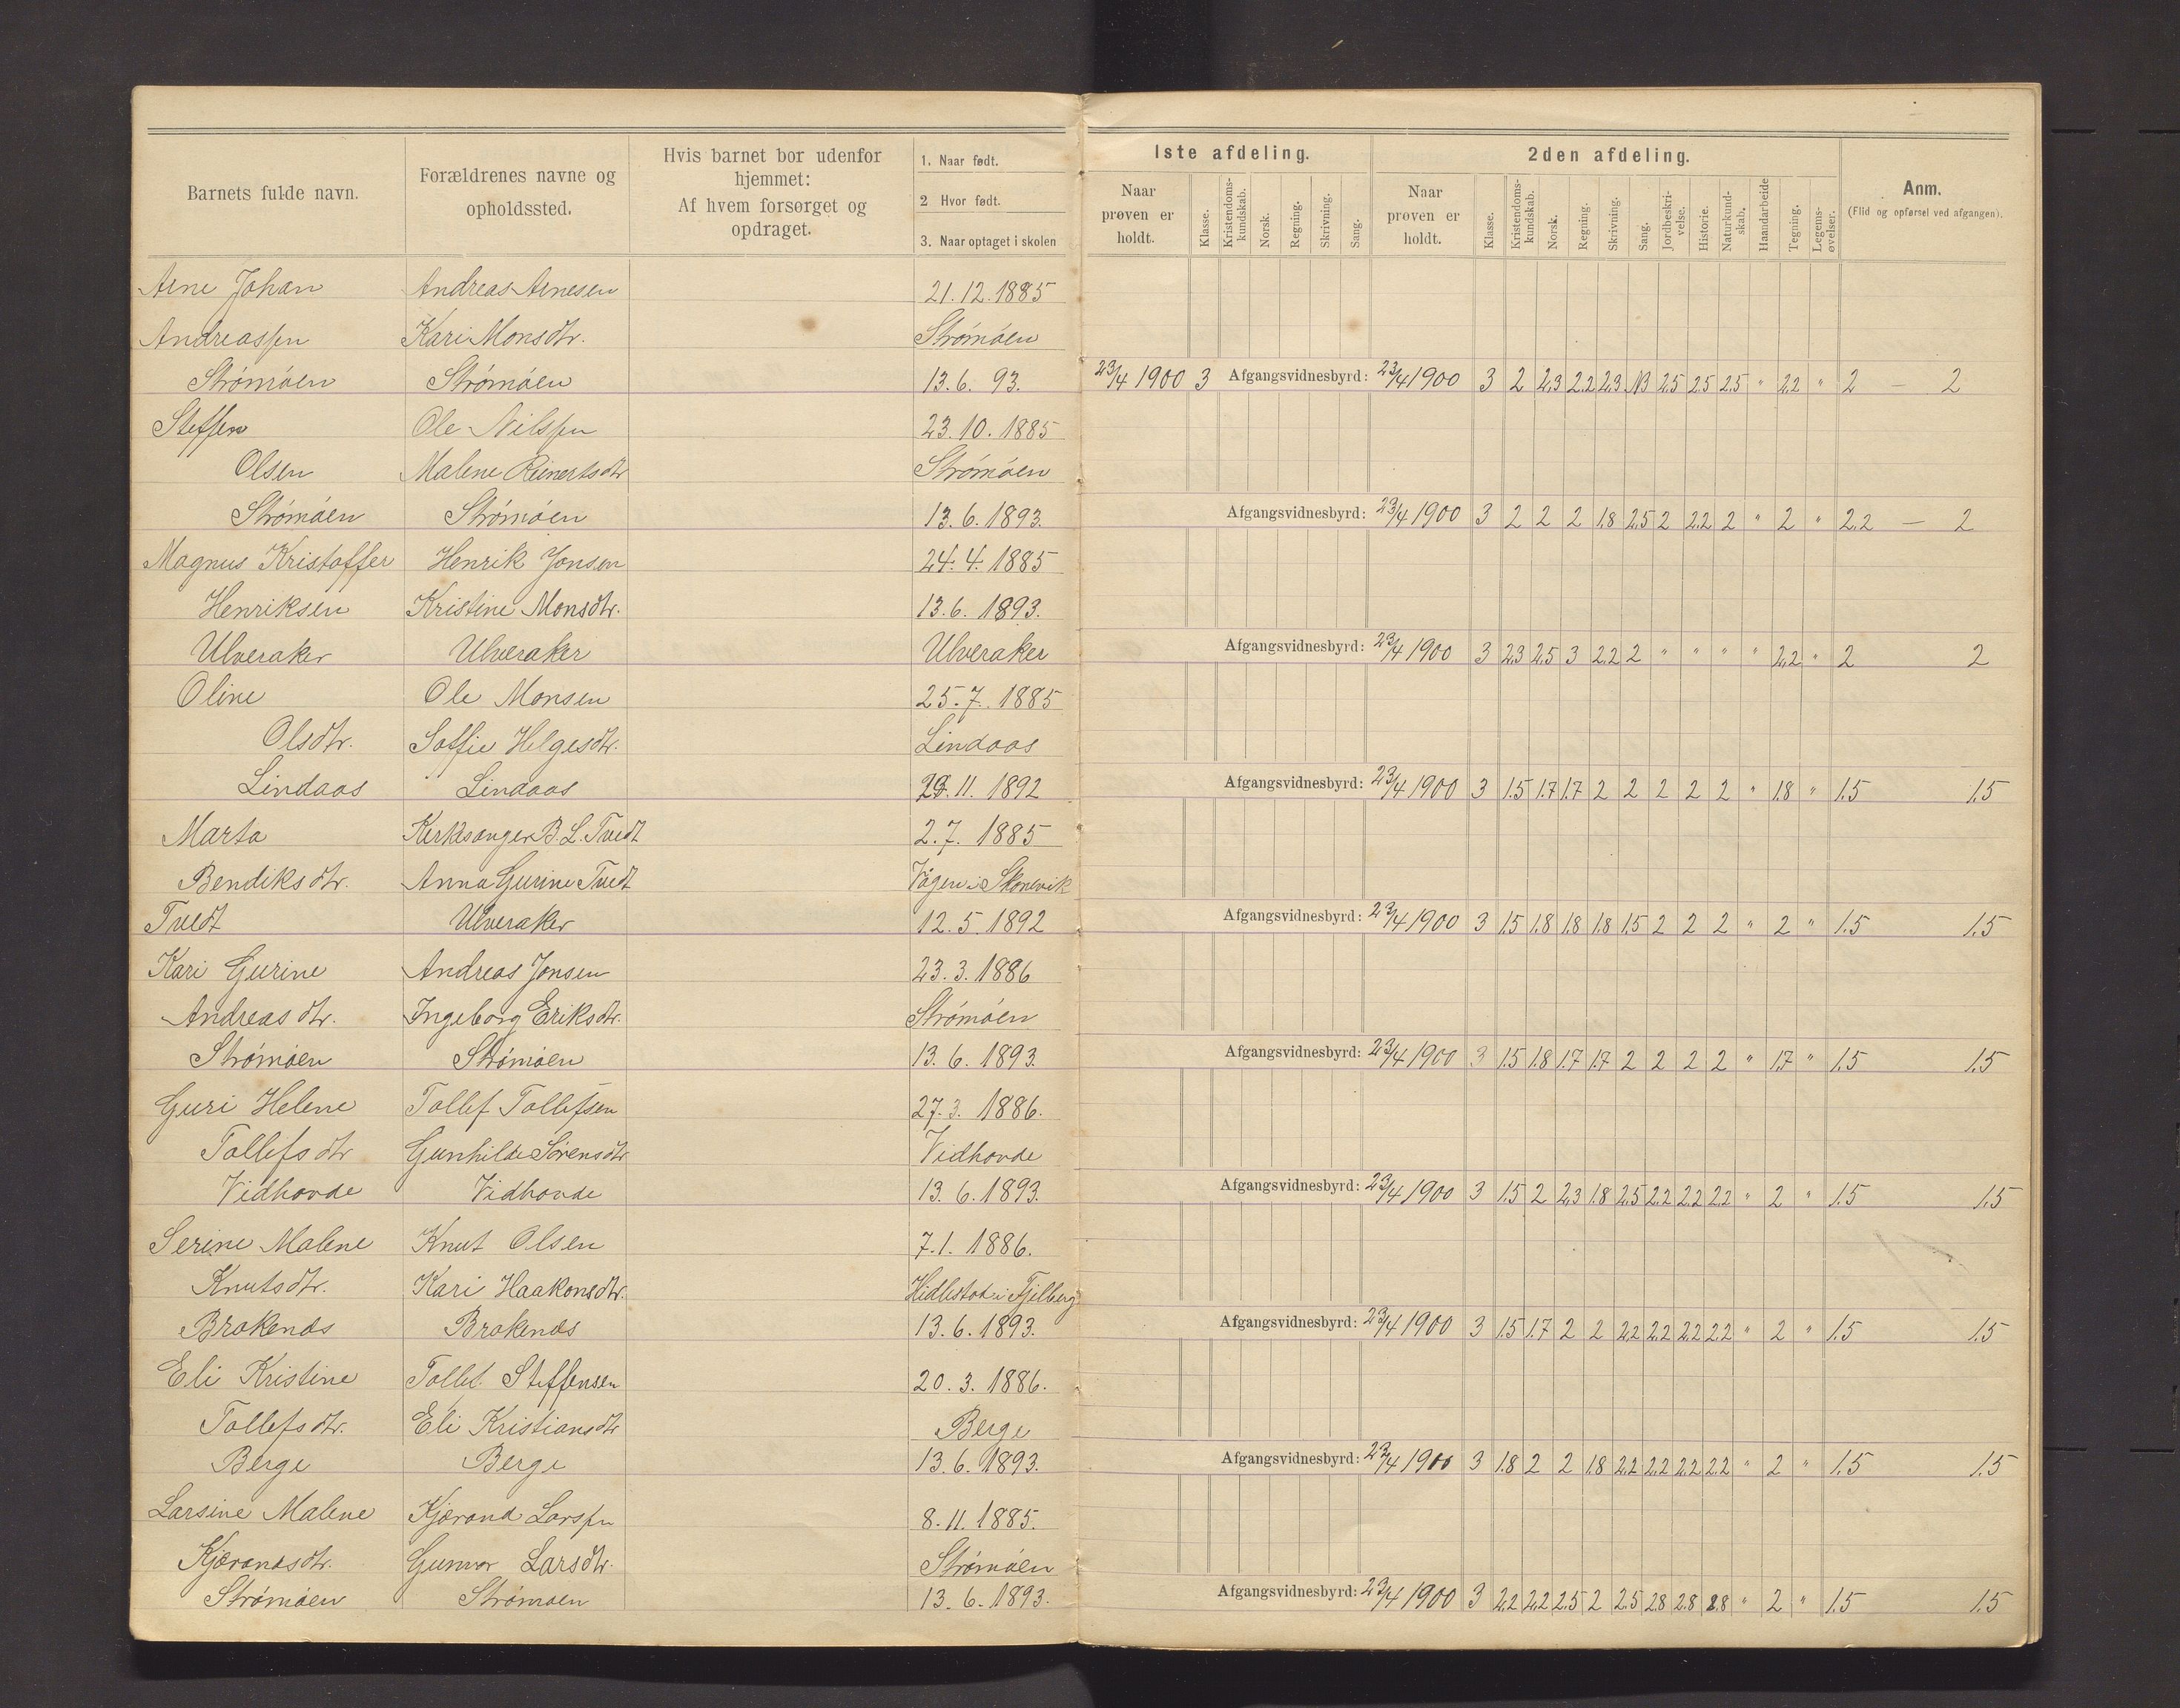 Barnets fulde navn. Forældrenes navne og opholdssted. Hvis barnet bor udenfor hjemmet: Af hvem forsørget og opdraget. 1. Naar født. 2 Hvor født. 3. Naar optaget i skolen
1ste afdeling. 2den afdeling.
Naar prøven er holdt. Klasse. Kristendoms-kundskab. Norsk. Regning. Skrivning. Sang. Naar prøven er holdt. Klasse. Kristendoms-kundskab. Norsk. Regning. Skrivning. Sang. Jordbeskri-velse. Historie. Naturkund-skab. Haandarbeide Tegning. Legems-øvelser. Anm. (Flid og opførsel ved afgangen).
Arne Johan Andreas Arnesen 21.12.1885
Andreassen Kari Monsdtr. Strømøen
Strømøen Strømøen 13.6. 93. 23/4 1900 3 Afgangsvidnesbyrd: 23/4 1900 3 2 2,3 2.2 2.3 NB 2.5 2.5 2.5 " 2.2 " 2 — 2
Steffen Ole Nilssen 23.10.1885
Olsen Malene Reinertsdtr Strømøen
Strømøen Strømøen 13.6.1893. Afgangsvidnesbyrd: 23/4 1900 3 2 2 2 1.8 2.5 2 2.2 2 " 2 " 2.2 — 2
Magnus Kristoffer Henrik Jonsen 24.4.1885
Henriksen Kristine Monsdtr. 13.6.1893.
Ulveraker Ulveraker Ulveraker Afgangsvidnesbyrd: 23/4 1900 3 2.3 2.5 3 2.2 2 " " " " 2.2 " 2 2
Oline Ole Monsen 25.7.1885
Olsdtr. Soffie Helgesdtr. Lindaas
Lindaas Lindaas 29.11.1892 Afgangsvidnesbyrd: 23/4 1900 3 1.5 1.7 1.7 2 2 2 2 2 " 1.8 " 1.5 1.5
Marta Kirkesanger B. L. Tvedt 2.7.1885
Bendiksdtr. Anna Gurine Tvedt Vågen i Skonevik
Tvedt Ulveraker 12.5.1892 Afgangsvidnesbyrd: 23/4 1900 3 1.5 1.8 1.8 1.8 1.5 2 2 2 " 2 " 1.5 1.5
Kari Gurine Andreas Jonsen 23.3.1886
Andreasdtr. Ingeborg Eriksdtr. Strømøen
Strømøen Strømøen 13.6.1893. Afgangsvidnesbyrd: 23/4 1900 3 1.5 1.8 1.7 1.7 2 2 2 2 " 1.7 " 1.5 1.5
Guri Helene Tollef Tollefsen 27.3.1886.
Tollefsdtr Gunhilde Sørensdtr Vidhovde
Vidhovde Vidhovde 13.6.1893. Afgangsvidnesbyrd: 23/4 1900 3 1.5 2 2.3 1.8 2.5 2.2 2.2 2.2 " 2 " 1.5 1.5
Serine Malene Knut Olsen 7.1.1886.
Knutsdtr. Kari Haakonsdtr. i Fjelberg
Brakenæs Brakenæs 13.6.1893. Afgangsvidnesbyrd: 23/4 1900 3 1.5 1.7 2 2 2.2 2.2 2.2 2.2 " 2 " 1.5 1.5
Eli Kristine Tollef Steffensen 20.3.1886.
Tollefsdtr. Eli Kristiansdtr Berge
Berge Berge 13.6.1893. Afgangsvidnesbyrd: 23/4 1900 3 1.8 2 2 1.8 2.2 2.2 2.2 2.2 " 2 " 1.5 1.5
Larsine Malene Kjærand Larssen 8.11.1885.
Kjærandsdtr. Gunvor Larsdtr. Strømøen
Strømøen Strømøen 13.6.1893. Afgangsvidnesbyrd: 23/4 1900 3 2.2 2.2 2.5 2 2.5 2.8 2.8 2.8 " 2 " 1.5 1.5